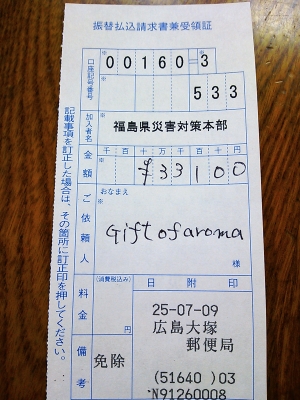 振替払込請求書兼受領証
口座記号番号
00160=3
533
加入者名
福島県災害対策本部
金額
千 百 十 万 千 百 十 円
¥33100
ご依頼人
おなまえ
Giftofaroma
様
料金
(消費税込み)
円
日附印
25-07-09
広島大塚
郵便局
備考
免除
(51640)03
N91260008
記載事項を訂正した場合は、その箇所に訂正印を押してください。